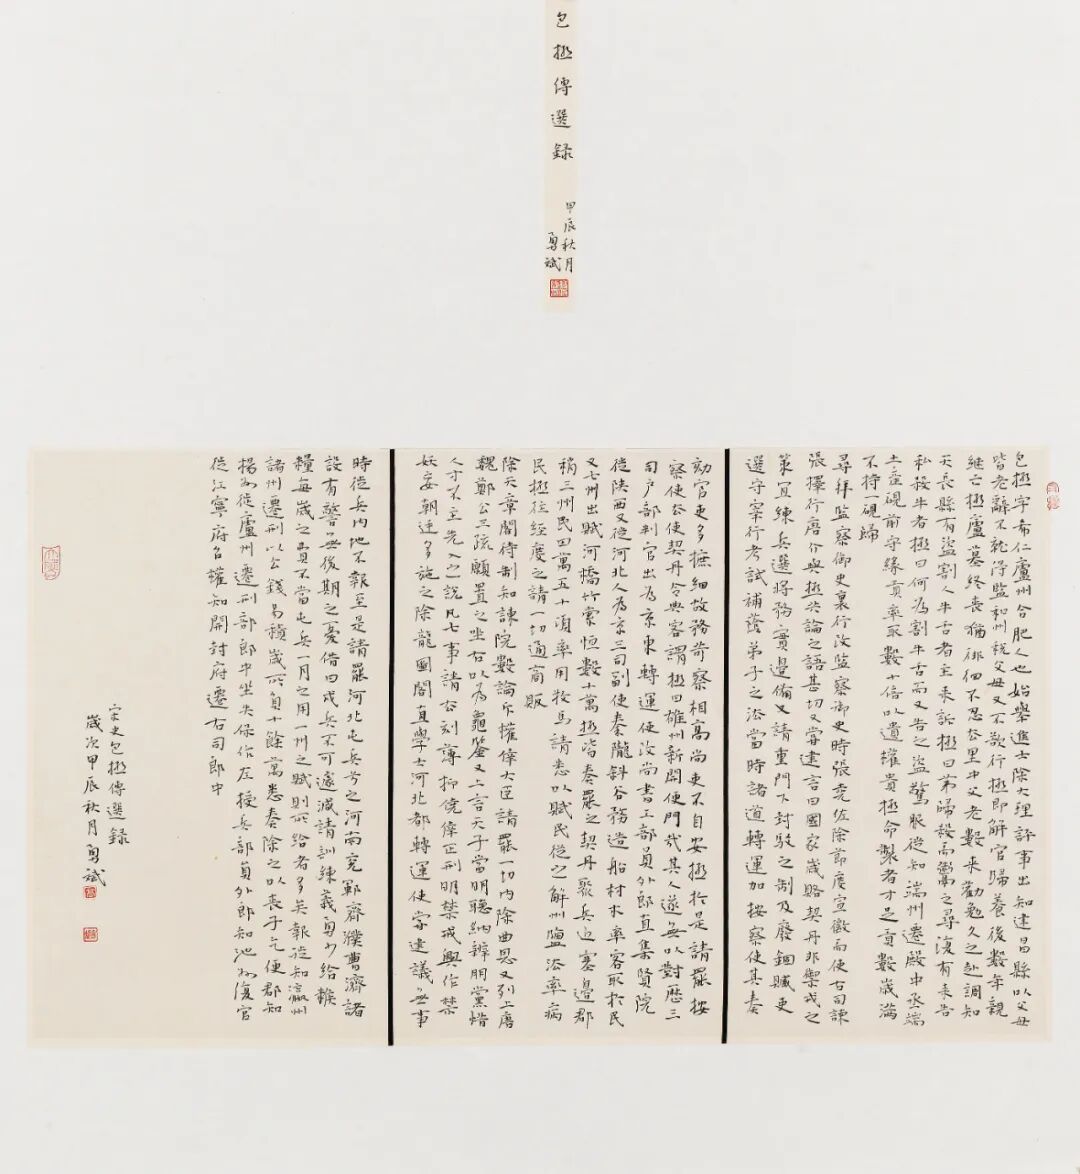 包拯傳選錄
甲辰秋月
勇斌
包拯字希仁廬州合肥人也始舉進士除大理評事出知建昌縣以父母
皆老辭不就得監和州稅父母又不欲行拯即解官歸養後數年親
繼亡拯廬墓終喪猶徘徊不忍去里中父老數來勸勉久之赴調知
天長縣有盜割人牛舌者主來訴拯曰第歸殺而鬻之尋復有來告
私殺牛者拯曰何為割牛舌而又告之盜驚服徙知端州遷殿中丞端
土產硯前守緣貢率取數十倍以遺權貴拯命製者才足貢數歲滿
不持一硯歸
尋拜監察御史裏行改監察御史時張堯佐除節度宣徽兩使右司諫
張擇行唐介與拯共論之語甚切又嘗建言曰國家歲賂契丹非禦戎之
策宜練兵選將務實邊備又請重門下封駁之制及廢錮贓吏
選守宰行考試補蔭弟子之法當時諸道轉運加按察使其奏
劾官吏多摭細故務苛察相高尚吏不自安拯於是請罷按
察使去使契丹令典客謂拯曰雄州新開便門哉其人遂無以對歷三
司戶部判官出為京東轉運使改尚書工部員外郎直集賢院
徙陝西又徙河北入為京三司副使秦隴斜谷務造船材木率客取於民
又七州出賦河橋竹索恒數十萬拯皆奏罷之契丹聚兵近塞邊郡
稍三州民田萬五十頃率用牧馬請悉以賦民從之解州鹽法率病
民拯往經度之請一切通商販
除天章閣待制知諫院數論斥權倖大臣請罷一切內除曲恩又列上唐
魏鄭公三疏願置之坐右以為龜鑒又上言天子當明聽納辨朋黨惜
人才不主先入之說凡七事請去刻薄抑僥倖正刑明禁戒興作禁
妖妄朝廷多施之除龍圖閣直學士河北都轉運使嘗建議無事
時徙兵內地不報至是請罷河北屯兵分之河南兗鄆齊濮曹濟諸
設有警無後期之憂借曰戍兵不可遽減請訓練義勇少給糇
糧每歲之費不當屯兵一月之用一州之賦則所給者多矣報徙知瀛州
諸州遷刑以公錢易積歲所負十餘萬悉奏除之以喪子乞便郡知
揚州徙廬州遷刑部郎中坐失保任左授兵部員外郎知池州復官
徙江寧府召權知開封府遷右司郎中
宋史包拯傳選錄
歲次甲辰秋月勇斌